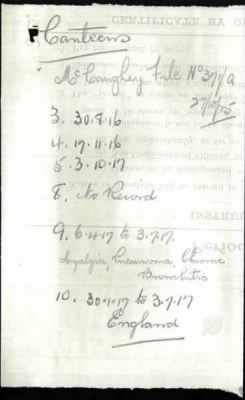 Canteens
McCaughey File No 371/a
27/10/15
3. 30.8.16
4. 17.11.16
5. 3.10.17
8. No Record
9. 6.4.17 to 3.7.17.
Myalgia, Pneumonia, Chronic
Bronchitis
10. 30.1.17 to 3.7.17
England